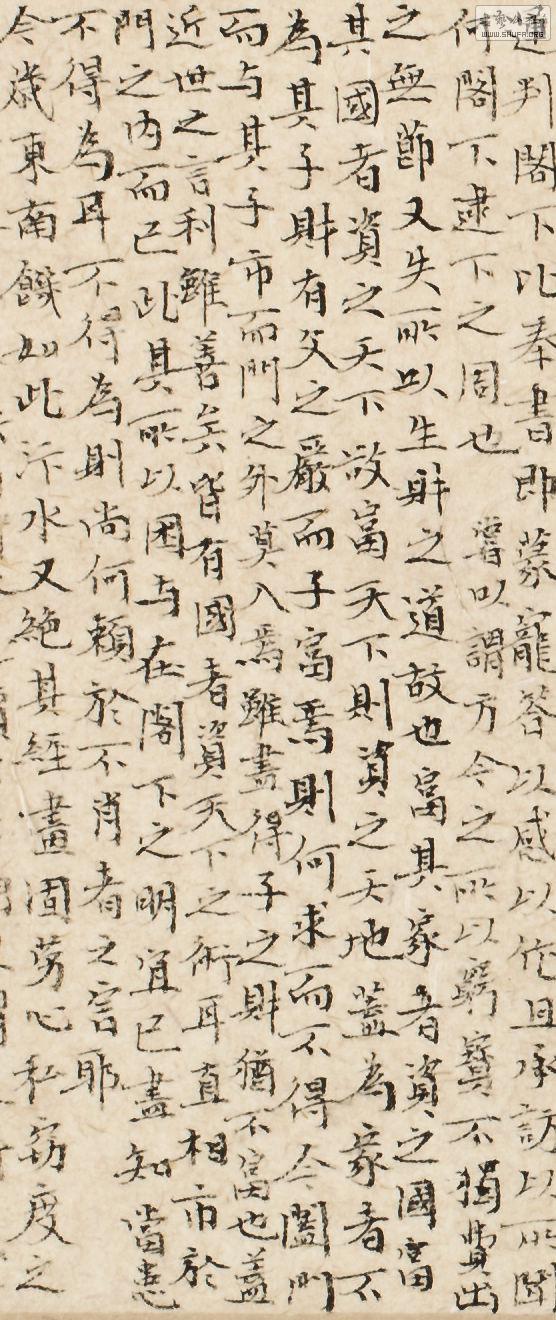 通判閣下比奉書即蒙寵答以感以怍且承訪以所聞
何閣下逮下之周也嘗以謂方今之所以窮窶不獨費出
之無節又失所以生財之道故也富其家者資之國富
其國者資之天下欲富天下則資之天地蓋為家者不
為其子財有父之嚴而子富焉則何求而不得今闔門
而与其子市而門之外莫入焉雖盡得子之財猶不富也蓋
近世之言利雖善矣皆有國者資天下之術耳直相市於
門之內而已此其所以困与在閣下之明宜已盡知當患
不得為耳不得為則尚何賴於不肖者之言耶
今歲東南饑如此汴水又絕其經畫固勞心私竊度之
WWW.SHUFA.ORG